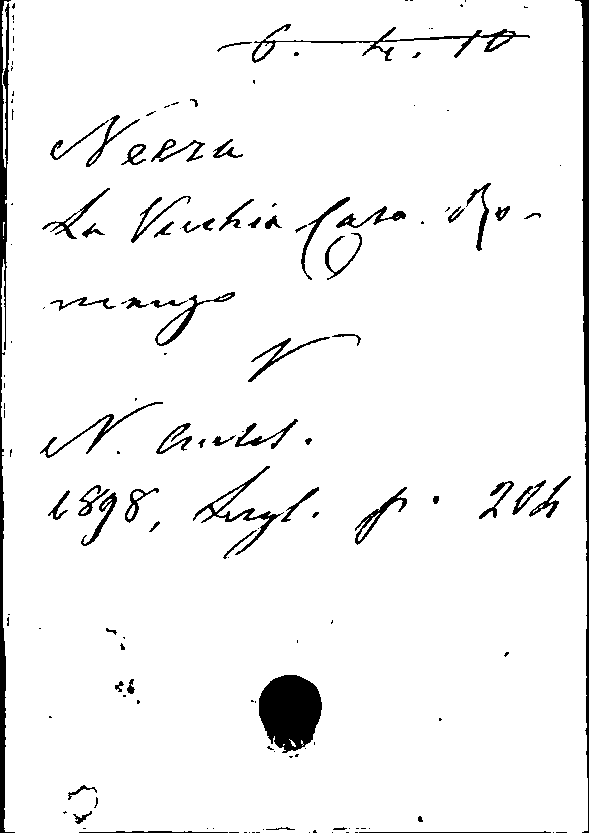 6. 4. 10
Neera
La Vecchia Casa. Ro-
manzo
N
N. Antol.
1898, Lugl. p. 204